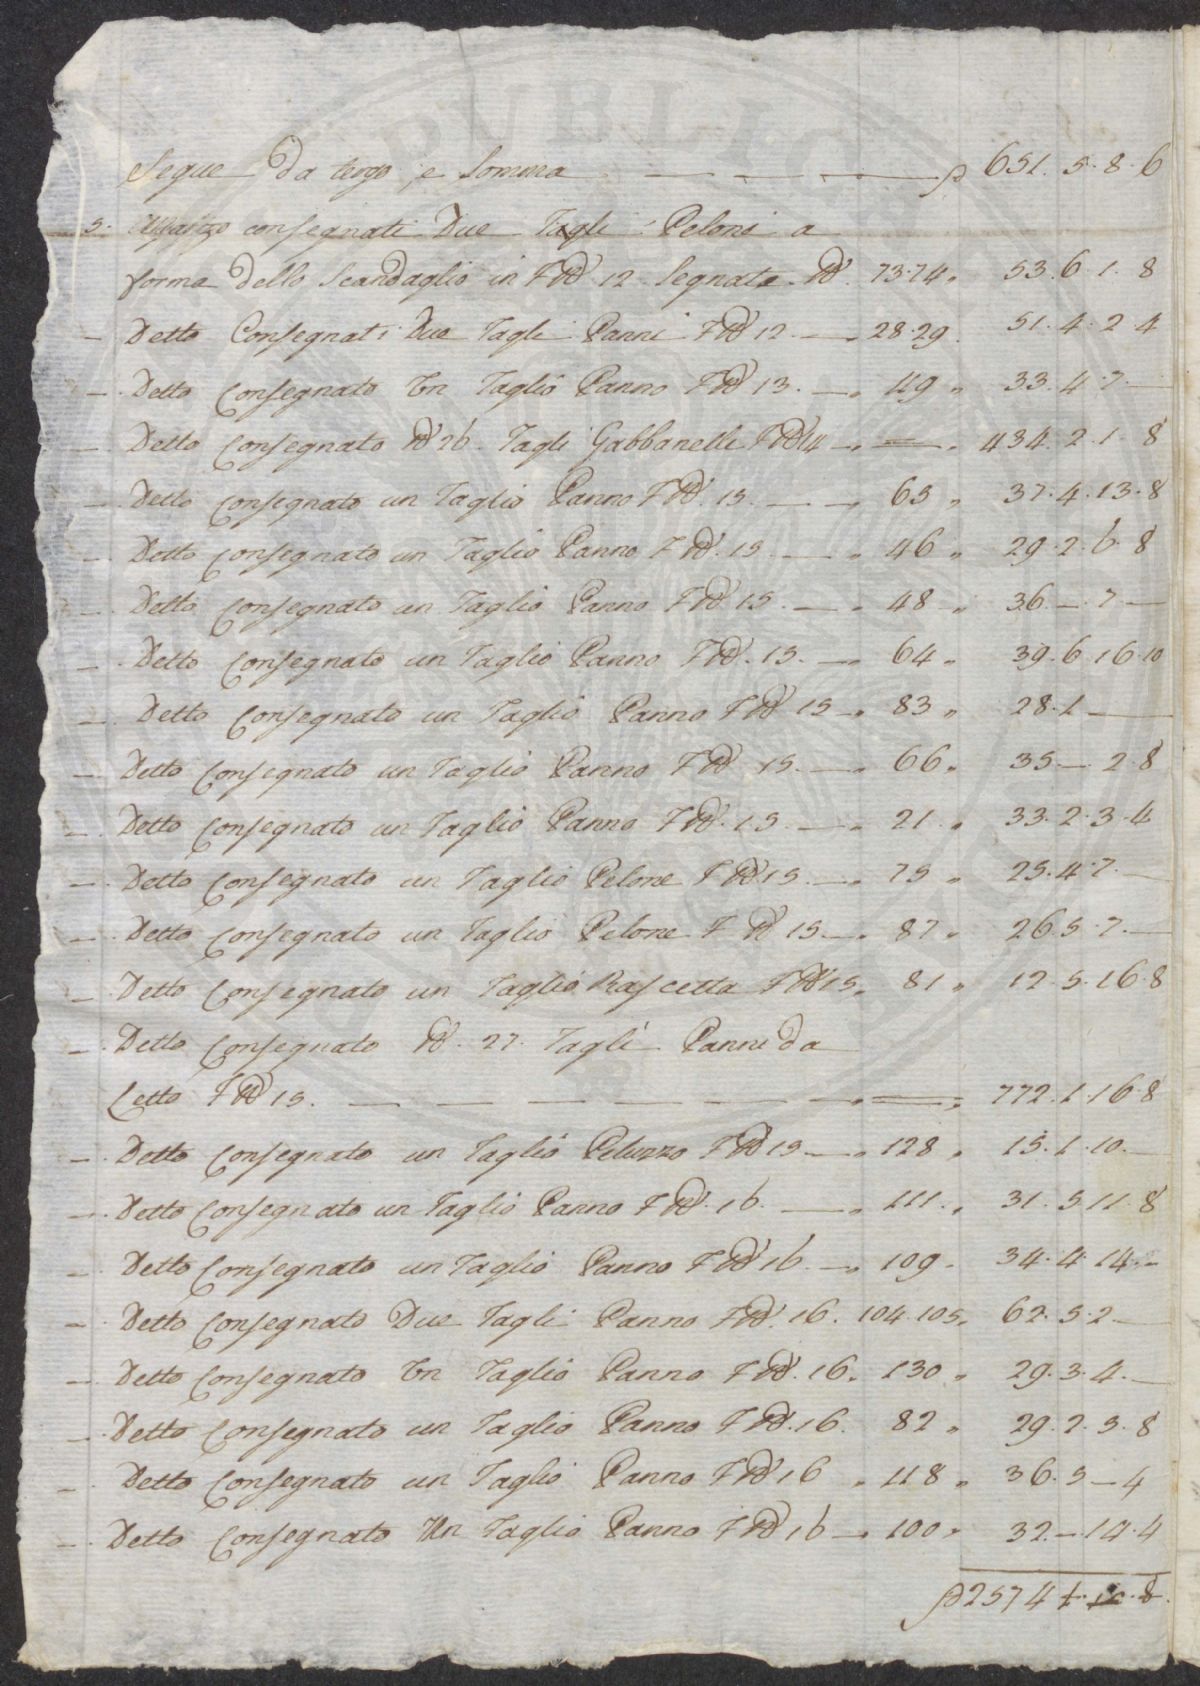 Segue da tergo, e Somma — — — — ꝭ 651. 5. 8. 6
5. Marzo consegnati Due Tagli Peloni a
forma dello Scandaglio in F N.º 12 Segnata N.º 73.74. 53. 6. 1. 8
— Detto Consegnati Due Tagli Panni F N.º 12 — 28.29. 51. 4. 2. 4
— Detto Consegnato Un Taglio Panno F N.º 13. — 49 " 33. 4. 7. —
— Detto Consegnato N.º 26. Tagli Gabbanelle F N.º 14 — = " 434. 2. 1. 8
— Detto Consegnato un Taglio Panno F N.º 15. — 65 " 37. 4. 13. 8
— Detto Consegnato un Taglio Panno F N.º 15 — 46 " 29. 2. 6. 8
— Detto Consegnato un Taglio Panno F N.º 15. — 48 " 36. — . 7 —
— Detto Consegnato un Taglio Panno F N.º 15. — 64 " 39. 6. 16. 10
— Detto Consegnato un Taglio Panno F N.º 15 — 83 " 28. 1 —
— Detto Consegnato un Taglio Panno F N.º 15. — 66 " 35 — . 2. 8
— Detto Consegnato un Taglio Panno F N.º 15 — 21 " 33. 2. 3. 4
— Detto Consegnato un Taglio Pelone F N.º 15 — 75 " 25. 4. 7. —
— Detto Consegnato un Taglio Pelone F N.º 15 — 87 " 26. 5. 7. —
— Detto Consegnato un Taglio Rascetta F N.º 15. 81 " 12. 5. 16. 8
— Detto Consegnato N.º 27. Tagli Panni da
Letto F N.º 15. — — — — — — = " 772. 1. 16. 8
— Detto Consegnato un Taglio Peluzzo F N.º 15 — 128 " 15. 1. 10. —
— Detto Consegnato un Taglio Panno F N.º 16. — 111. " 31. 5. 11. 8
— Detto Consegnato un Taglio Panno F N.º 16 — 109 " 34. 4. 14. —
— Detto Consegnato Due Tagli Panno F N.º 16. 104.105. 62. 5. 2 —
— Detto Consegnato Un Taglio Panno F N.º 16. 130 " 29. 3. 4. —
— Detto Consegnato un Taglio Panno F N.º 16. 82 " 29. 2. 5. 8
— Detto Consegnato un Taglio Panno F N.º 16 " 118 " 36. 5 — 4
— Detto Consegnato Un Taglio Panno F N.º 16 — 100 " 32. — . 14. 4
ꝭ 2574